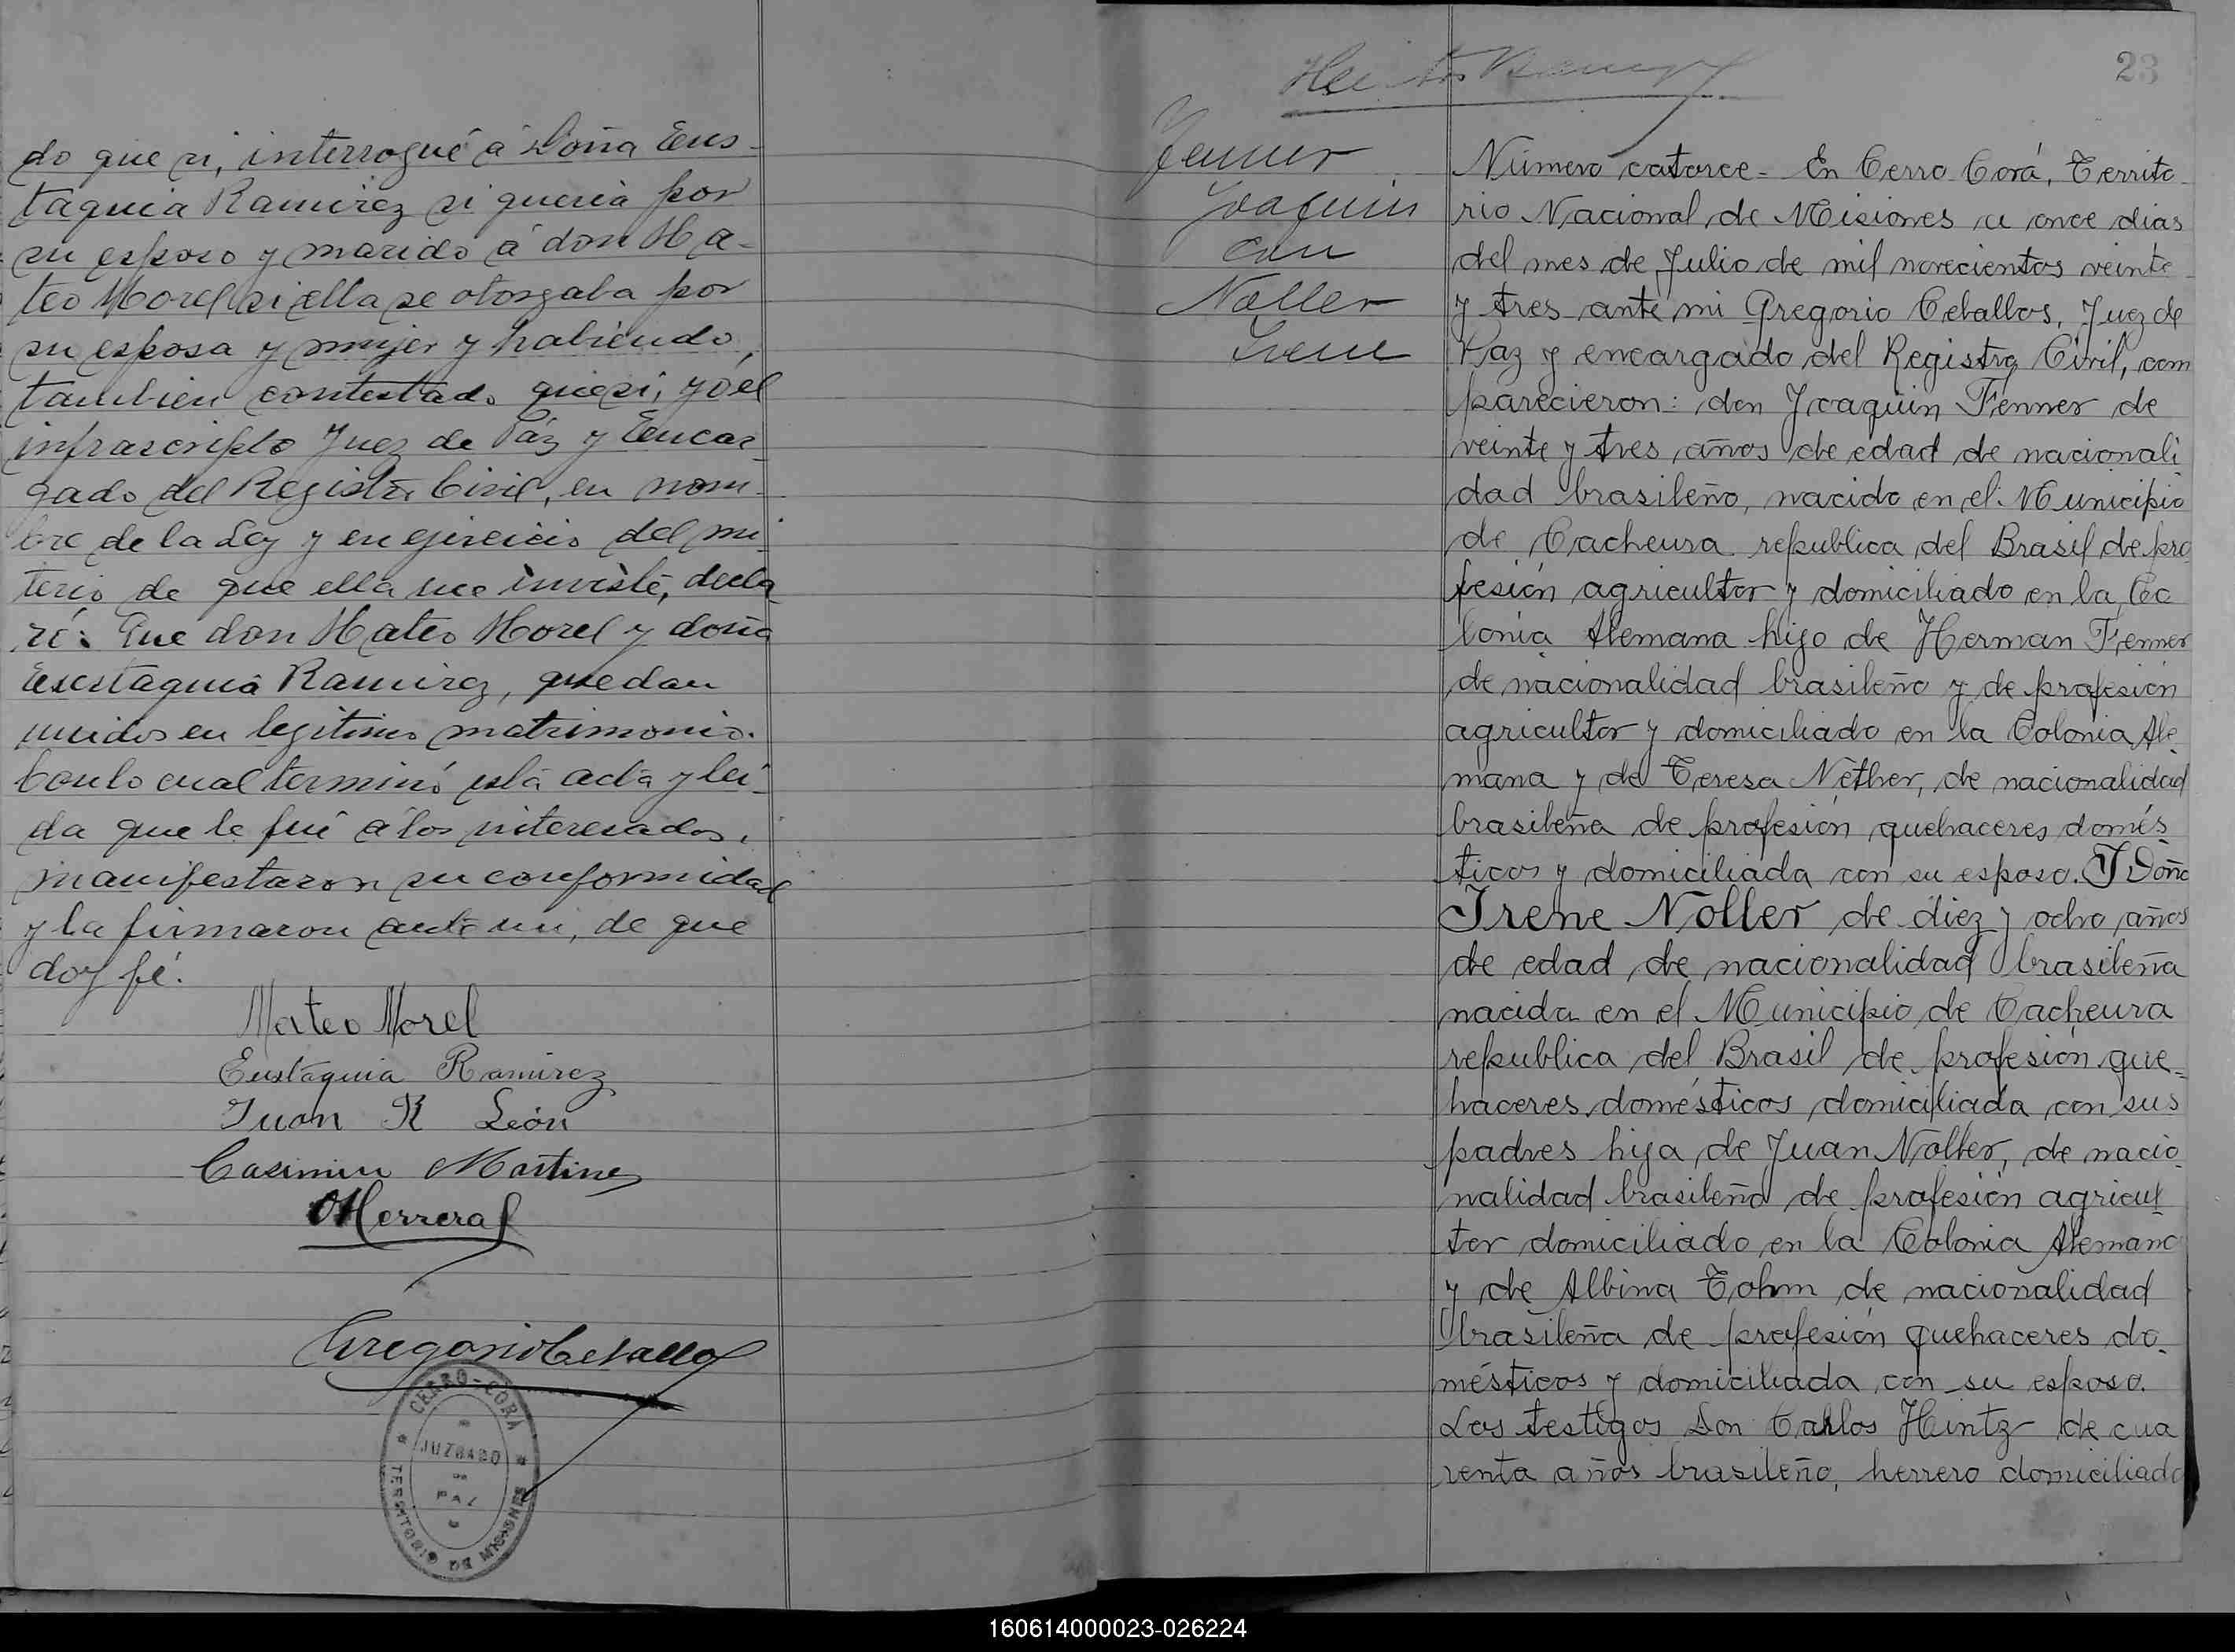 do que si, interrogué á Doña Eus-
taquia Ramirez si queria por
su esposo y marido á don Ma-
teo Morel si ella se otorgaba por
su esposa y mujer y habiendo
tambien contestado que si, yo el
infrascripto Juez de Páz y Encar-
gado del Registro Civil, en nom-
bre de la Ley y en ejercicio del mi-
terio de que ella me inviste, decla-
ré: Que don Mateo Morel y doña
Eustaquia Ramirez, quedan
unidos en legitimo matrimonio.
Con lo cual terminó esta acta y lei-
da que le fué á los interesados,
manifestaron su conformidad
y la firmaron ante mi, de que
doy fé.
Mateo Morel
Eustaquia Ramirez
Juan R León
Casimiro Martinez
Herrera
Gregorio Ceballos
CERRO-CORÁ
JUZGADO
DE
PAZ
TERRITORIO DE MISIONES
23
Fenner
Joaquin
con
Noller
Irene
Número catorce - En Cerro Corá, Territo-
rio Nacional de Misiones a once dias
del mes de Julio de mil novecientos veinte
y tres ante mi Gregorio Ceballos, Juez de
Paz y encargado del Registro Civil, com
parecieron: don Joaquin Fenner de
veinte y tres años de edad de nacionali
dad brasileño, nacido en el Municipio
de Cacheura republica del Brasil de pro
fesión agricultor y domiciliado en la Co
lonia Alemana hijo de Herman Fenner
de nacionalidad brasileño y de profesión
agricultor y domiciliado en la Colonia Ale
mana y de Teresa Nether, de nacionalidad
brasileña de profesión quehaceres domés
ticos y domiciliada con su esposo. Y Doña
Irene Noller de diez y ocho años
de edad de nacionalidad brasileña
nacida en el Municipio de Cacheura
republica del Brasil de profesión que-
haceres domésticos domiciliada con sus
padres hija de Juan Noller, de nacio
nalidad brasileña de profesión agricul
tor domiciliado en la Colonia Alemana
y de Albina Tohm de nacionalidad
brasileña de profesión quehaceres do-
mésticos y domiciliada con su esposo.
Los testigos Don Carlos Hintz de cua
renta años brasileño, herrero domiciliado
160614000023-026224